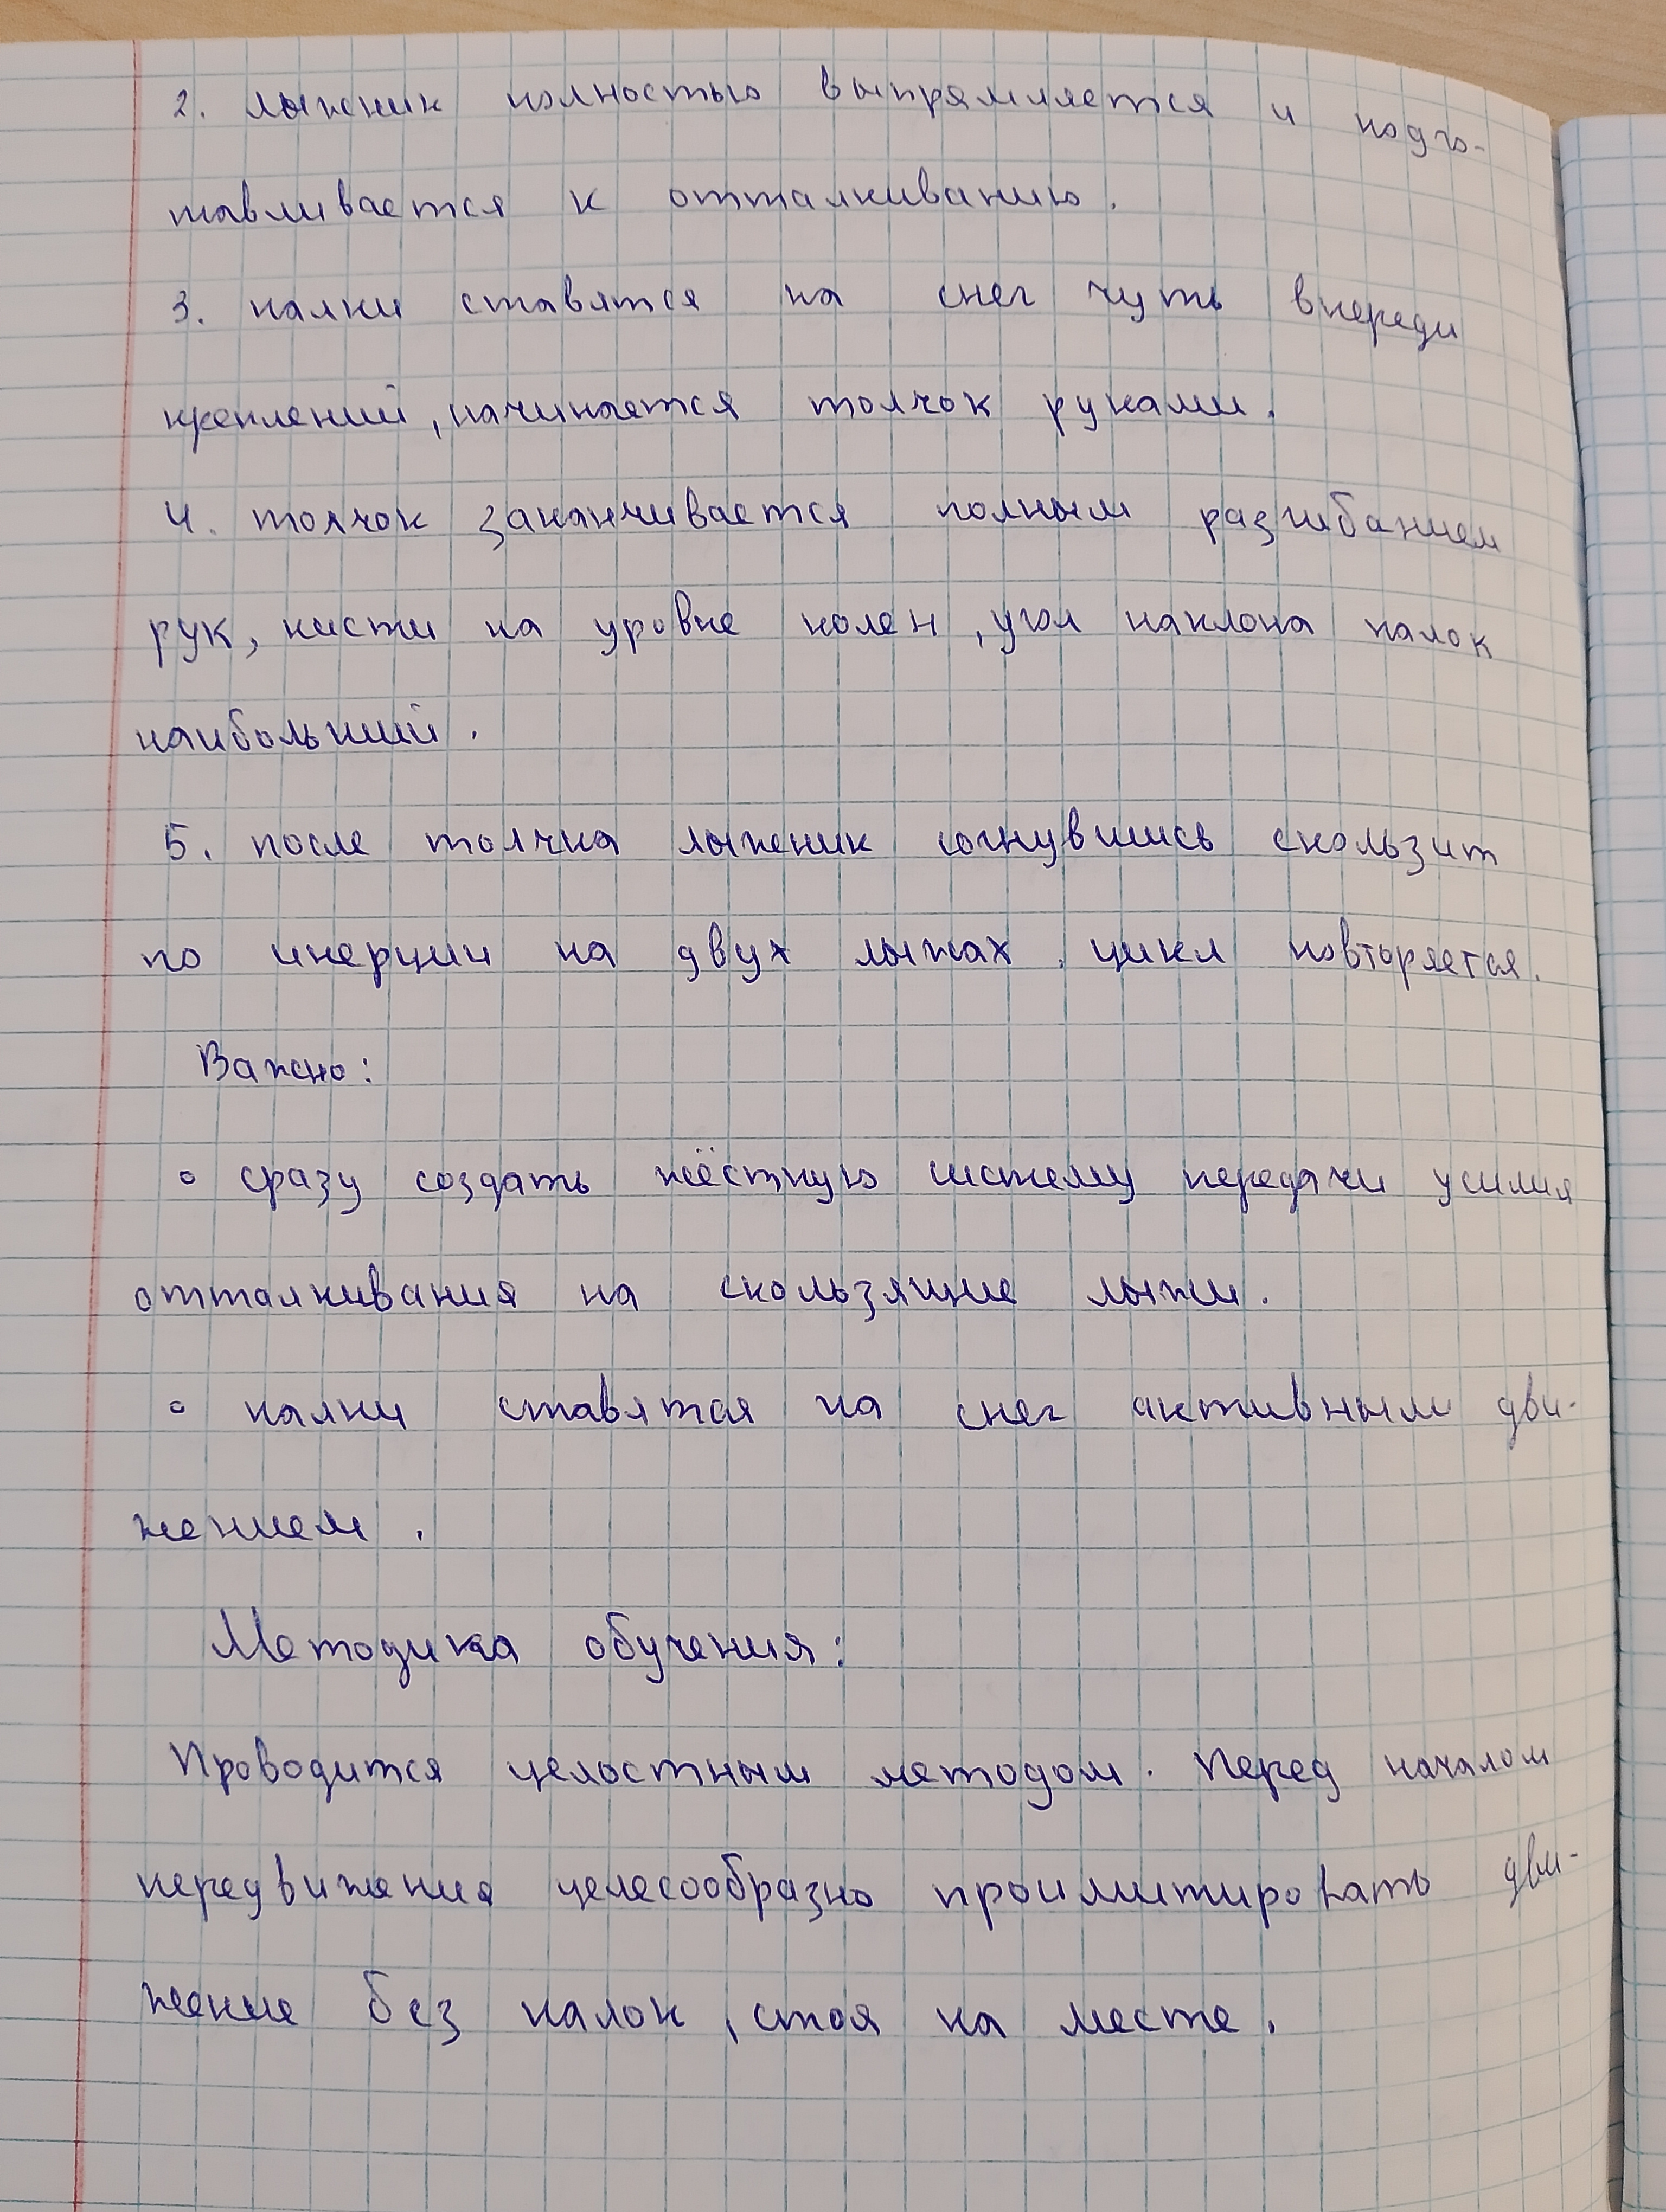 2. лыжник полностью выпрямляется и подго-
тавливается к отталкиванию.
3. палки ставятся на снег чуть впереди
креплений, начинается толчок руками.
4. толчок заканчивается полным разгибанием
рук, кисти на уровне колен, угол наклона палок
наибольший.
5. после толчка лыжник согнувшись скользит
по инерции на двух лыжах, цикл повторяется.
Важно:
∘ сразу создать жёсткую систему передачи усилия
отталкивания на скользящие лыжи.
∘ палки ставятся на снег активным дви-
жением.
Методика обучения:
Проводится целостным методом. Перед началом
передвижения целесообразно проимитировать дви-
жение без палок, стоя на месте.